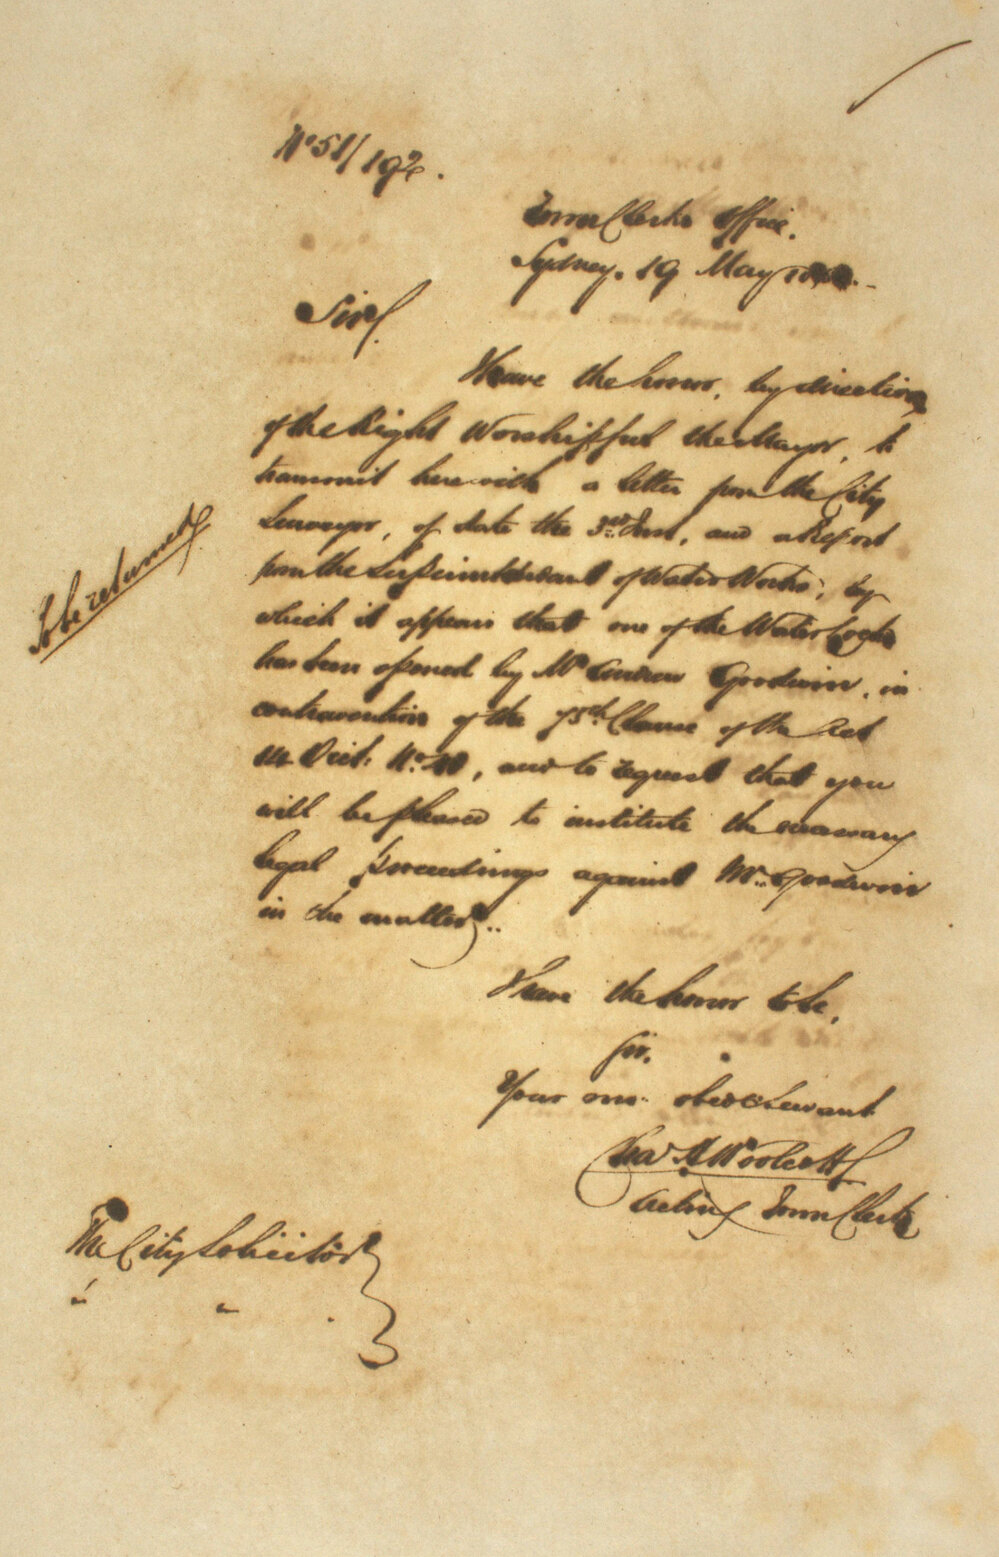 No 51/192.
Town Clerks Office.
Sydney. 19 May
Sir,
I have the honor, by direction
of the Right Worshipful the Mayor, to
transmit herewith a letter from the City
Surveyor, of date the 3rd Inst, and a Report
from the Superintendent of Water Works, by
which it appears that one of the Water Cocks
has been opened by Mr Andrew Goodwin, in
contravention of the 73rd Clause of the Act
14 Vict: No 41, and to request that you
will be pleased to institute the necessary
legal proceedings against Mr. Goodwin
in the matter..
I have the honor to be,
Sir,
Your mo: obed Servant
Chas H Woolcott
Acting Town Clerk
To be returned
The City Solicitor
" " .